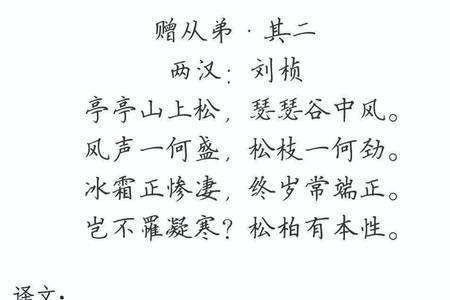 赠从弟·其二
两汉：刘桢
亭亭山上松，瑟瑟谷中风。
风声一何盛，松枝一何劲。
冰霜正惨凄，终岁常端正。
岂不罹凝寒？松柏有本性。
译文：